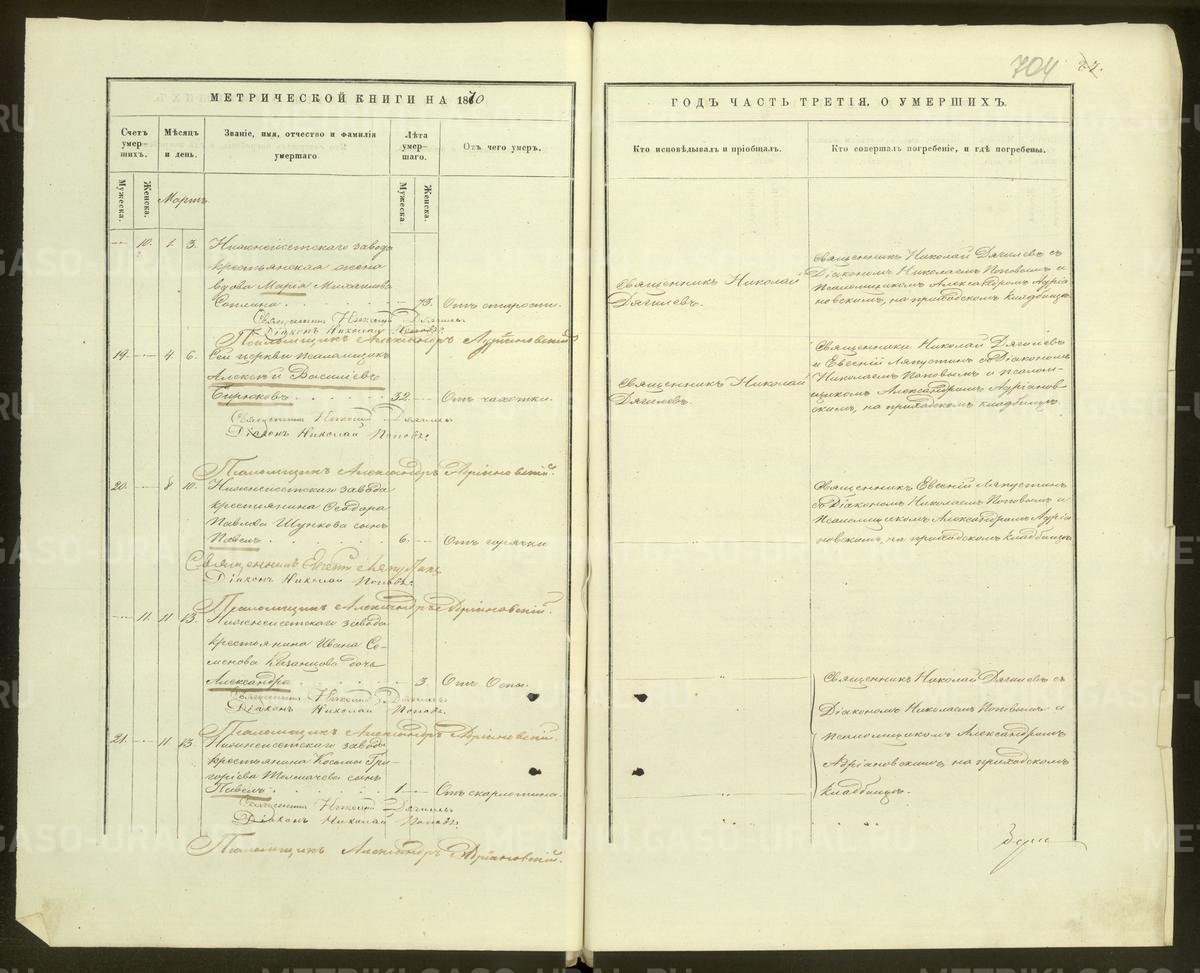 704
МЕТРИЧЕСКОЙ КНИГИ НА 1870
Счетъ умер-шихъ.
Мѣсяцъ и день.
Званіе, имя, отчество и фамилія умершаго
Лѣта умер-шаго.
Отъ чего умеръ.
Мужеска.
Женска.
Мартъ
Мужеска.
Женска.
10. 1. 3. Нижнеисетскаго завода
крестьянская жена
вдова Марія Михаилова
73. Отъ старости.
Священникъ Николай Дягилевъ
Діаконъ Николай Поповъ.
Псаломщикъ Александръ Адріановскій
19. 4. 6. Сей церкви псаломщикъ
Алексѣй Василіевъ
Бирюковъ 32. Отъ чахотки.
Священникъ Николай Дягилевъ
Діаконъ Николай Поповъ.
Псаломщикъ Александръ Адріановскій.
20. 8 10. Нижнеисетскаго завода
крестьянина Ѳеодора
Павлова Шункова сынъ
Павелъ 6. Отъ горячки
Священникъ Евгеній Ляпустинъ
Діаконъ Николай Поповъ.
Псаломщикъ Александръ Адріановскій.
11. 11 13. Нижнеисетскаго завода
крестьянина Ивана Се-
менова Казанцова дочь
Александра 3. Отъ Оспы.
Священникъ Николай Дягилевъ.
Діаконъ Николай Поповъ.
Псаломщикъ Александръ Адріановскій.
21. 11 13 Нижнеисетскаго завода
крестьянина Космы Гри-
горіева Толмачева сынъ
Павелъ. 1 Отъ скарлатины.
Священникъ Николай Дягилевъ
Діаконъ Николай Поповъ.
Псаломщикъ Александръ Адріановскій.
ГОДЪ ЧАСТЬ ТРЕТІЯ, О УМЕРШИХЪ.
Кто исповѣдывалъ и пріобщалъ.
Кто совершалъ погребеніе, и гдѣ погребены.
Священникъ Николай
Дягилевъ.
Священникъ Николай Дягилевъ съ
Діакономъ Николаемъ Поповымъ и
Псаломщикомъ Александромъ Адріа-
новскимъ, на приходскомъ кладбищѣ.
Священникъ Николай
Дягилевъ.
Священники Николай Дягилевъ
и Евгеній Ляпустинъ съ Діакономъ
Николаемъ Поповымъ и псалом-
щикомъ Александромъ Адріанов-
скимъ, на приходскомъ кладбищѣ.
Священникъ Евгеній Ляпустинъ
съ Діакономъ Николаемъ Поповымъ и
Псаломщикомъ Александромъ Адріа-
новскимъ, на приходскомъ кладбищѣ
Священникъ Николай Дягилевъ съ
Діакономъ Николаемъ Поповымъ и
псаломщикомъ Александромъ
Адріановскимъ на приходскомъ
кладбищѣ.
METRIKI.GASO-URAL.RU